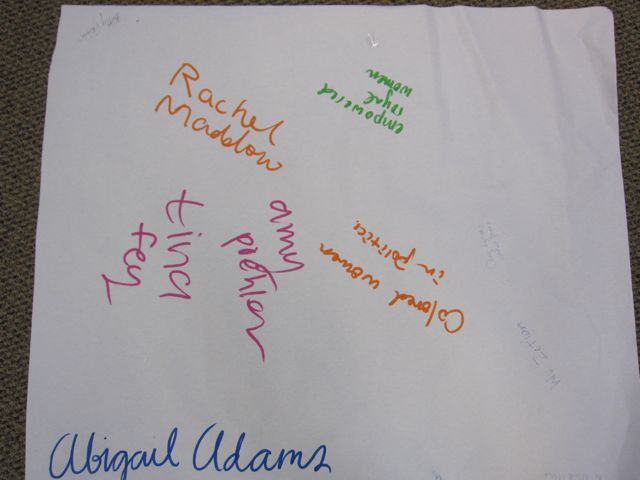 Rachel
Maddow
empowered
royal
women
amy
poehler
tina
fey
Colored women
in politics
Abigail Adams